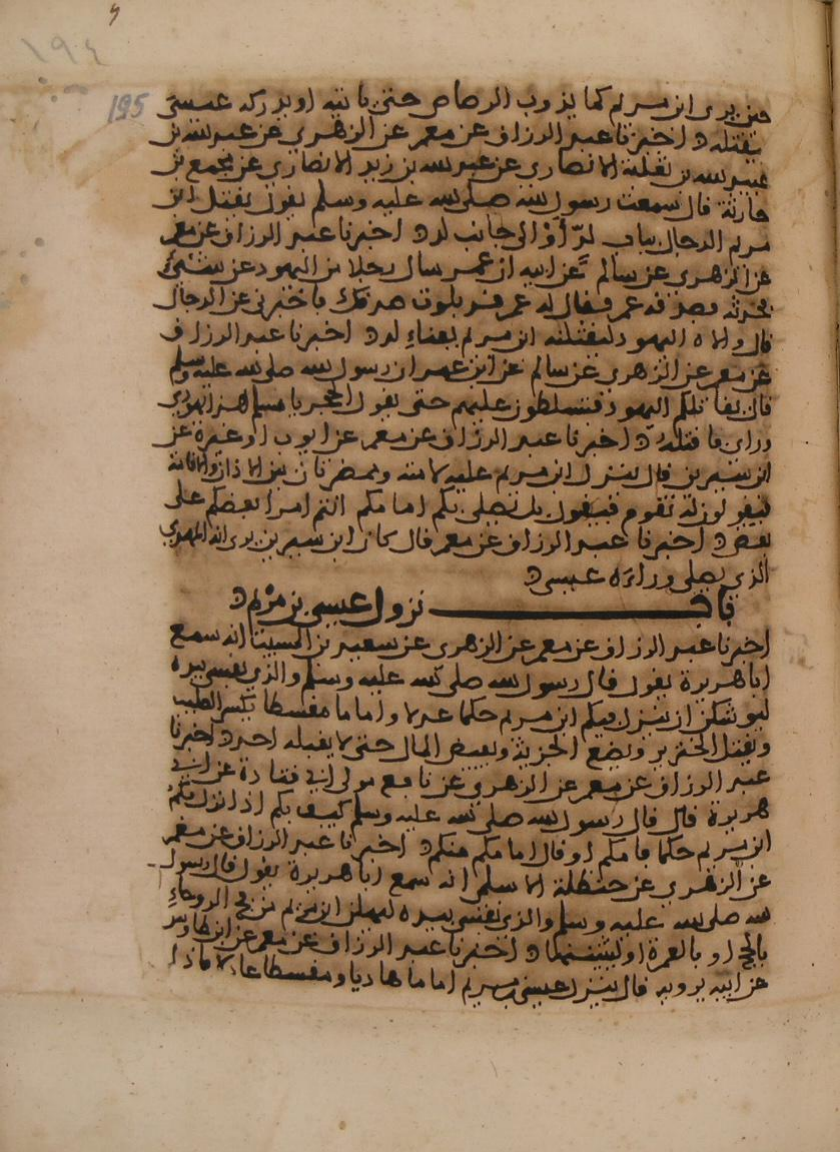 ١٩٤
195
حين يرى ابن مريم كما يذوب الرصاص حتى ياتيه او يدركه عيسى
فيقتله اخبرنا عبد الرزاق عن معمر عن الزهري عن عبد الله بن
عبيد الله بن ثعلبة الانصاري عن عبد الله بن زيد الانصاري عن مجمع بن
جارية قال سمعت رسول الله صلى الله عليه وسلم يقول يقتل ابن
مريم الدجال بباب لد او الى جانب لد اخبرنا عبد الرزاق عن معمر
عن الزهري عن سالم عن ابيه ان عمر سال رجلا من اليهود عن شيء
فحدثه فصدقه عمر فقال له عمر قد بلوت صدقك فاخبرني عن الدجال
قال والاه اليهود ليقتلنه ابن مريم بفناء لد اخبرنا عبد الرزاق
عن معمر عن الزهري عن سالم عن ابن عمر ان رسول الله صلى الله عليه وسلم
قال يقاتلكم اليهود فتسلطون عليهم حتى يقول الحجر يا مسلم هذا يهودي
وراي فاقتله اخبرنا عبد الرزاق عن معمر عن ايوب او غيره عن
ابن سيرين قال ينزل ابن مريم عليه لامته وممصرتان بين الاذان والاقامة
فيقولون له تقدم فيقول بل يصلي بكم امامكم انتم امرا بعضكم على
بعض اخبرنا عبد الرزاق عن معمر قال كان ابن سيرين يرى انه المهدي
الذي يصلي وراءه عيسى
باب نزول عيسى بن مريم
اخبرنا عبد الرزاق عن معمر عن الزهري عن سعيد بن المسيب انه سمع
ابا هريرة يقول قال رسول الله صلى الله عليه وسلم والذي نفسي بيده
ليوشكن ان ينزل فيكم ابن مريم حكما عدلا واماما مقسطا يكسر الصليب
ويقتل الخنزير ويضع الجزية ويفيض المال حتى لا يقبله احد اخبرنا
عبد الرزاق عن معمر عن الزهري عن نافع مولى ابي قتادة عن ابي
هريرة قال قال رسول الله صلى الله عليه وسلم كيف بكم اذا نزل بكم
ابن مريم حكما فامكم او قال امامكم منكم اخبرنا عبد الرزاق عن معمر
عن الزهري عن حنظلة الاسلمي انه سمع ابا هريرة يقول قال رسول
الله صلى الله عليه وسلم والذي نفسي بيده ليهلن ابن مريم من فج الروحاء
بالحج او بالعمرة او ليثنينهما اخبرنا عبد الرزاق عن معمر عن ابن طاوس
عن ابيه يرويه قال ينزل عيسى بن مريم اماما هاديا ومقسطا عادلا فاذا